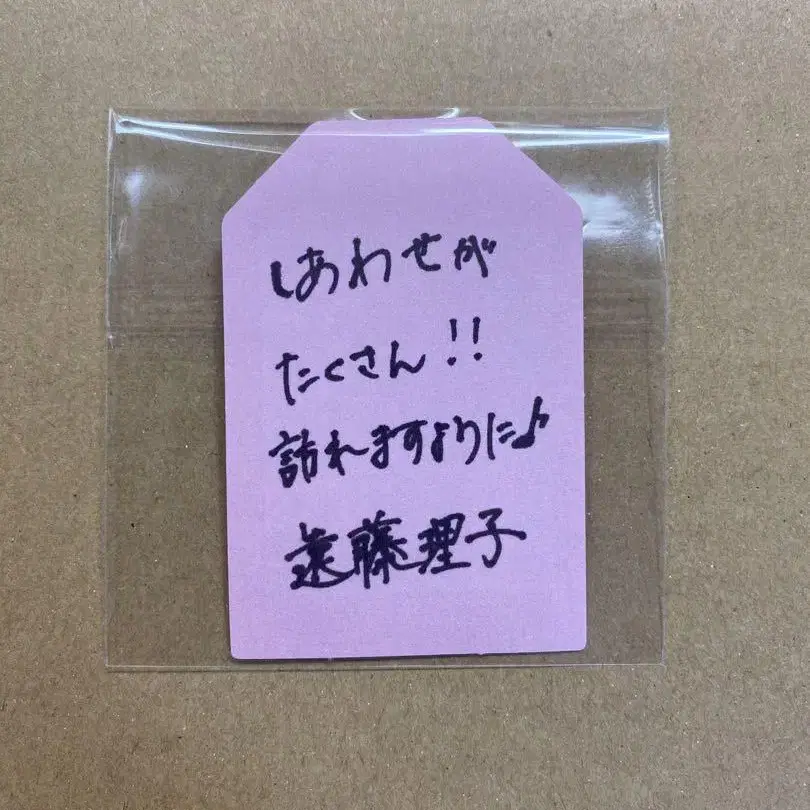 しあわせが
たくさん!!
訪れますように♪
遠藤理子